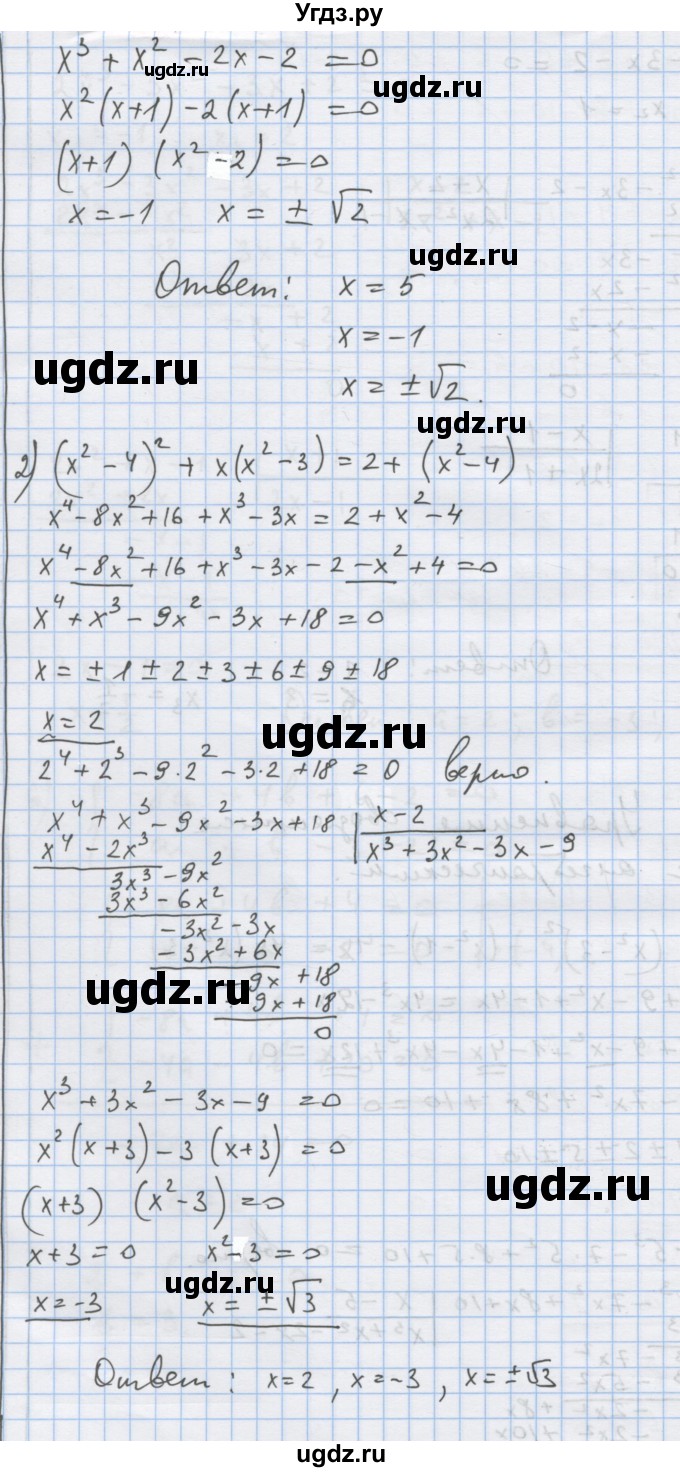 Угдз.ру
x³ + x² - 2x - 2 = 0
ugdz.ru
ugdz.ru
x²(x+1) - 2(x+1) = 0
(x+1) (x² - 2) = 0
x = -1 x = ± √2
ugdz.ru
Ответ: x = 5
x = -1
ugdz.ru
x = ± √2.
ugdz.ru
2) (x² - 4)² + x(x² - 3) = 2 + (x² - 4)
x⁴ - 8x² + 16 + x³ - 3x = 2 + x² - 4
x⁴ - 8x² + 16 + x³ - 3x - 2 - x² + 4 = 0
x⁴ + x³ - 9x² - 3x + 18 = 0
x = ± 1 ± 2 ± 3 ± 6 ± 9 ± 18
x = 2
ugdz.ru
2⁴ + 2³ - 9·2² - 3·2 + 18 = 0 верно.
x⁴ + x³ - 9x² - 3x + 18 | x - 2
x⁴ - 2x³ x³ + 3x² - 3x - 9
3x³ - 9x²
3x³ - 6x²
- 3x² - 3x
- 3x² + 6x
ugdz.ru
- 9x + 18
- 9x + 18
0
x³ + 3x² - 3x - 9 = 0
x²(x + 3) - 3 (x + 3) = 0
ugdz.ru
(x+3) (x² - 3) = 0
x + 3 = 0 x² - 3 = 0
ugdz.ru
x = -3 x = ± √3
Ответ: x = 2, x = -3, x = ± √3
ugdz.ru